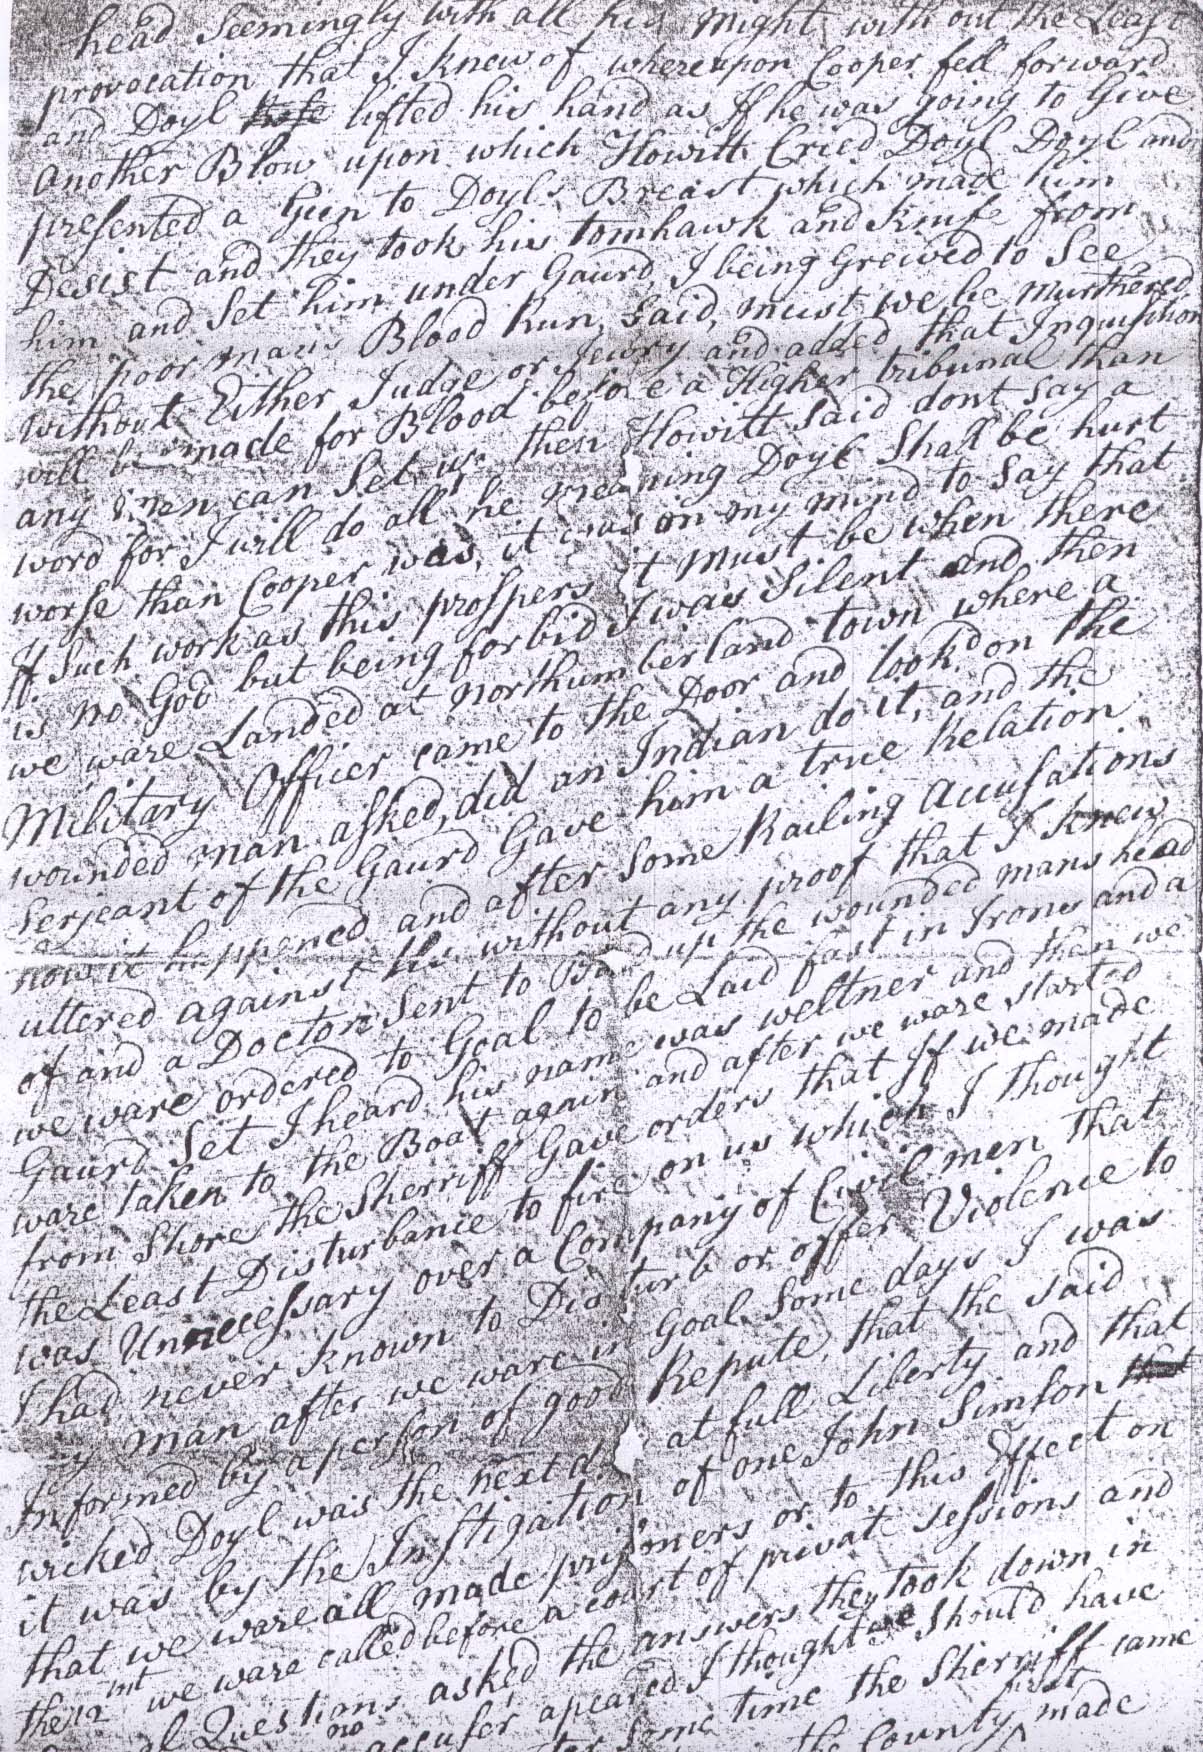 head Seemingly with all his Might with out the Least
provocation that I knew of whereupon Cooper fell forward
and Doyl lifted his hand as If he was going to Give
Another Blow upon which Howitt Cried Doyl Doyl and
presented a Gun to Doyls Breast which made him
Desist and they took his tomhawk and knife from
him and Set him under Gaurd, I being Greived to See
the poor mans Blood Run, Said, must we be Murthered
without Either Judge or Jewry and added that Inquisition
will be made for Blood before a Higher tribunal than
any men can Set up then Howitt Said dont Say a
word for I will do all he meaning Doyl Shall be hurt
worse than Cooper was, it was on my mind to Say that
If Such work as this prospers it must be when there
is no God but being forbid I was Silent and then
we ware Landed at Northumberland town where a
Military Officer came to the Door and look'd on the
wounded man asked, did an Indian do it, and the
Serjeant of the Gaurd Gave him a true Relation
how it happened and after Some Railing Accusations
uttered against us without any proof that I knew
of and a Doctor Sent to Bind up the wounded mans head
we ware ordered to Goal to be Laid fast in Irons and a
Gaurd Set I heard his name was weltner and then we
ware taken to the Boat again and after we ware started
from Shore the Sherriff Gave orders that If we made
the Least Disturbance to fire on us which I thought
was Unnecessary over a Company of Civil men that
I had never known to Disturb or offer Violence to
any man after we ware in Goal Some days I was
Informed by a person of good Repute that the said
wicked Doyl was the next day at full Liberty and that
it was by the Instigation of one John Simson
that we ware all made prisoners or to this Effect on
the 12 int we ware called before a court of private sessions and
Questians asked the answers they took down in
no accuser apeared I thought we Should have
Some time the Sherriff came
the County first made